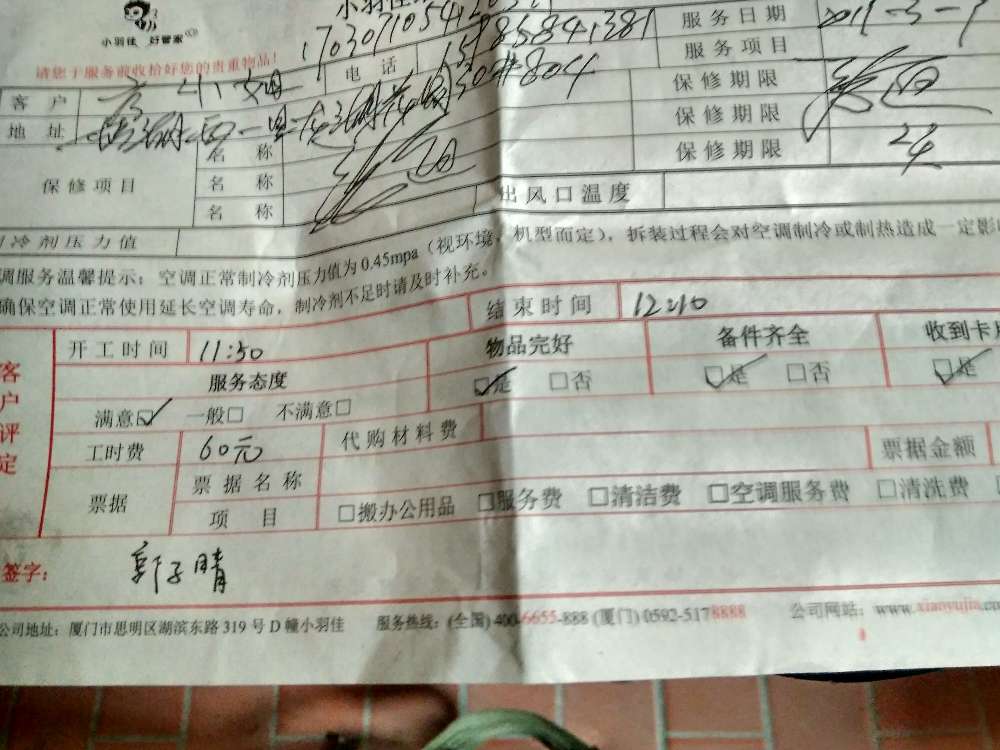 小羽佳
小羽佳 好管家
请您于服务前收拾好您的贵重物品!
服务日期
客户 小姐 电话 服务项目
地址 保修期限
保修项目 名称 保修期限
名称 保修期限 24
名称 出风口温度
冷剂压力值
调服务温馨提示:空调正常制冷剂压力值为0.45mpa(视环境、机型而定),拆装过程会对空调制冷或制热造成一定影
确保空调正常使用延长空调寿命,制冷剂不足时请及时补充。
客户评定
开工时间 11:50 结束时间 12:10
服务态度 物品完好 备件齐全 收到卡
满意☑ 一般□ 不满意□ ☑是 □否 ☑是 □否 ☑是
工时费 60元 代购材料费 票据金额
票据 票据名称
项目 □搬办公用品 □服务费 □清洁费 □空调服务费 □清洗费
签字: 郭子晴
公司地址:厦门市思明区湖滨东路319号D幢小羽佳 服务热线:(全国)400-6655-888 (厦门)0592-5178888 公司网站:www.xiaoyujia.cn